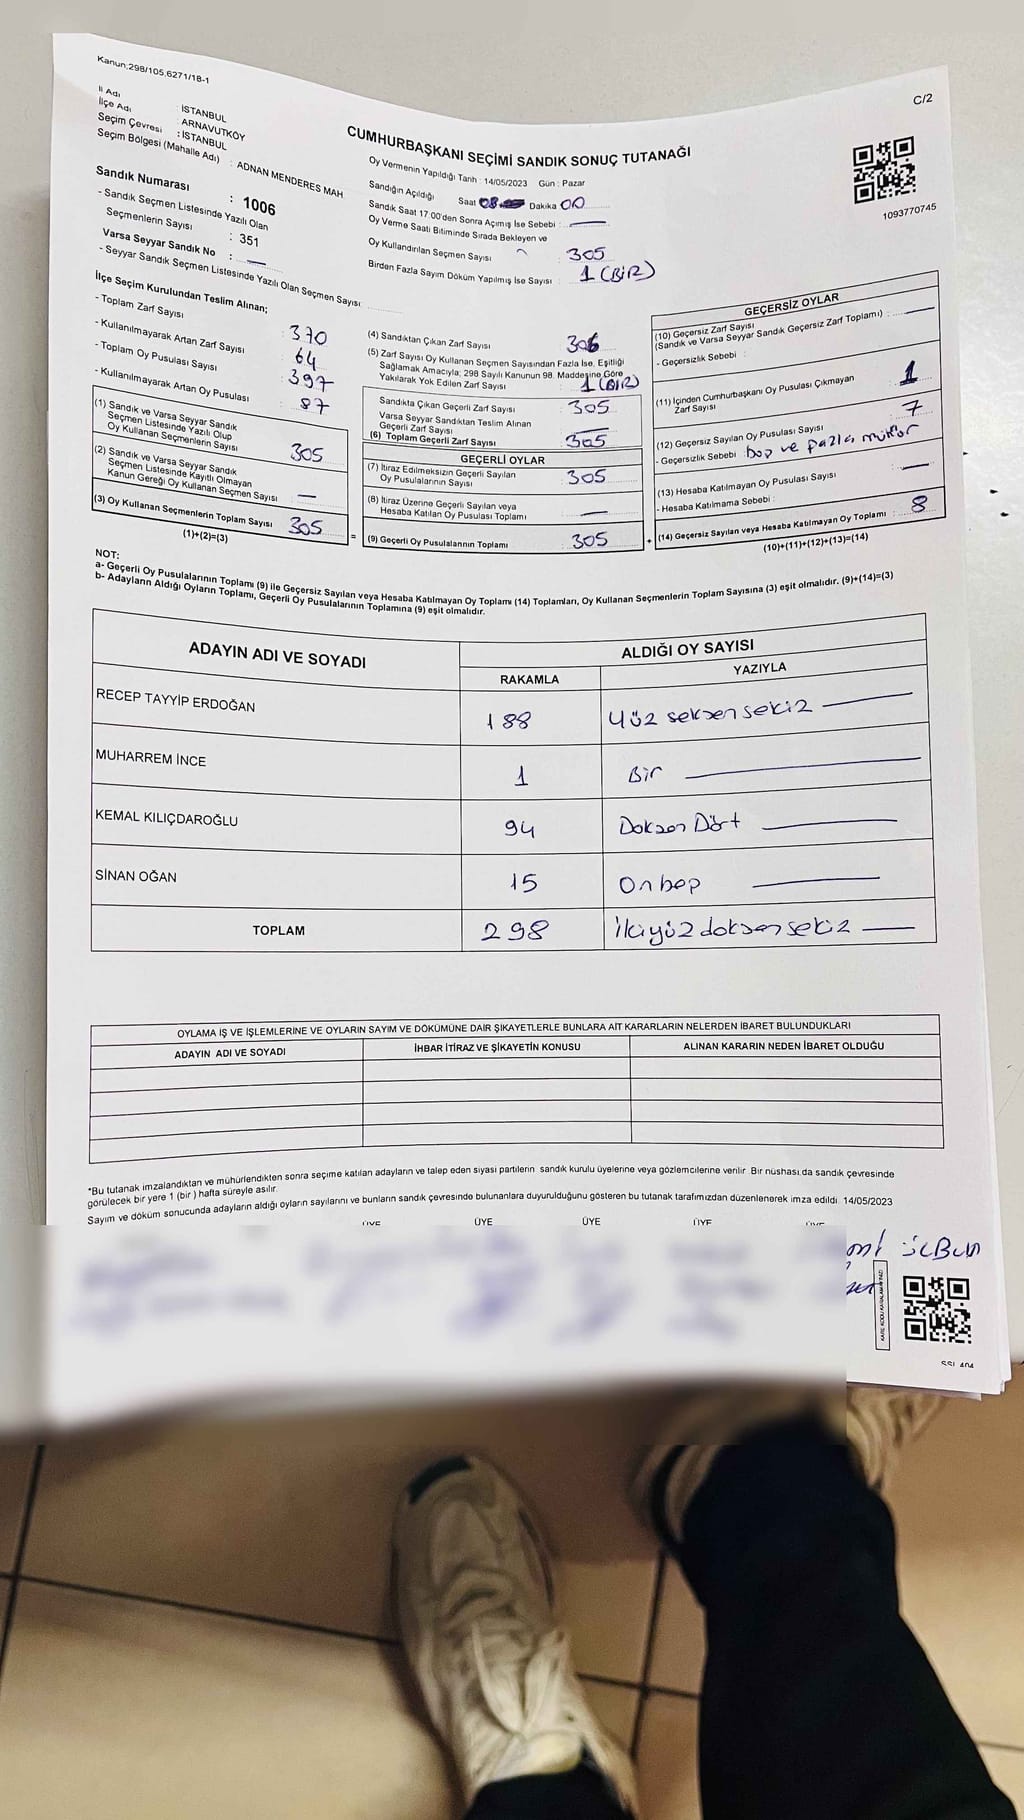 Kanun;298/105,6271/18-1
C/2
İl Adı : İSTANBUL
İlçe Adı : ARNAVUTKÖY
Seçim Çevresi : İSTANBUL
Seçim Bölgesi (Mahalle Adı) : ADNAN MENDERES MAH
Sandık Numarası : 1006
- Sandık Seçmen Listesinde Yazılı Olan
Seçmenlerin Sayısı : 351
Varsa Seyyar Sandık No : —
- Seyyar Sandık Seçmen Listesinde Yazılı Olan Seçmen Sayısı
CUMHURBAŞKANI SEÇİMİ SANDIK SONUÇ TUTANAĞI
Oy Vermenin Yapıldığı Tarih : 14/05/2023 Gün : Pazar
Sandığın Açıldığı Saat 08 Dakika 00
Sandık Saat 17:00'den Sonra Açılmış İse Sebebi : —
Oy Verme Saati Bitiminde Sırada Bekleyen ve
Oy Kullandırılan Seçmen Sayısı 305
Birden Fazla Sayım Döküm Yapılmış İse Sayısı : 1 (BİR)
1093770745
İlçe Seçim Kurulundan Teslim Alınan;
- Toplam Zarf Sayısı : 370
- Kullanılmayarak Artan Zarf Sayısı : 64
- Toplam Oy Pusulası Sayısı : 397
- Kullanılmayarak Artan Oy Pusulası : 87
(1) Sandık ve Varsa Seyyar Sandık
Seçmen Listesinde Yazılı Olup
Oy Kullanan Seçmenlerin Sayısı 305
(2) Sandık ve Varsa Seyyar Sandık
Seçmen Listesinde Kayıtlı Olmayan
Kanun Gereği Oy Kullanan Seçmen Sayısı —
(3) Oy Kullanan Seçmenlerin Toplam Sayısı 305
(1)+(2)=(3)
(4) Sandıktan Çıkan Zarf Sayısı 306
(5) Zarf Sayısı Oy Kullanan Seçmen Sayısından Fazla İse, Eşitliği
Sağlamak Amacıyla; 298 Sayılı Kanunun 98. Maddesine Göre
Yakılarak Yok Edilen Zarf Sayısı : 1 (BİR)
Sandıkta Çıkan Geçerli Zarf Sayısı 305
Varsa Seyyar Sandıktan Teslim Alınan
Geçerli Zarf Sayısı —
(6) Toplam Geçerli Zarf Sayısı 305
GEÇERLİ OYLAR
(7) İtiraz Edilmeksizin Geçerli Sayılan
Oy Pusulalarının Sayısı 305
(8) İtiraz Üzerine Geçerli Sayılan veya
Hesaba Katılan Oy Pusulası Toplamı —
= (9) Geçerli Oy Pusulalarının Toplamı 305 +
GEÇERSİZ OYLAR
(10) Geçersiz Zarf Sayısı
(Sandık ve Varsa Seyyar Sandık Geçersiz Zarf Toplamı) : —
- Geçersizlik Sebebi :
(11) İçinden Cumhurbaşkanı Oy Pusulası Çıkmayan
Zarf Sayısı 1
(12) Geçersiz Sayılan Oy Pusulası Sayısı 7
- Geçersizlik Sebebi : boş ve fazla mühür
(13) Hesaba Katılmayan Oy Pusulası Sayısı —
- Hesaba Katılmama Sebebi :
(14) Geçersiz Sayılan veya Hesaba Katılmayan Oy Toplamı : 8
(10)+(11)+(12)+(13)=(14)
NOT:
a- Geçerli Oy Pusulalarının Toplamı (9) ile Geçersiz Sayılan veya Hesaba Katılmayan Oy Toplamı (14) Toplamları, Oy Kullanan Seçmenlerin Toplam Sayısına (3) eşit olmalıdır. (9)+(14)=(3)
b- Adayların Aldığı Oyların Toplamı, Geçerli Oy Pusulalarının Toplamına (9) eşit olmalıdır.
ADAYIN ADI VE SOYADI
ALDIĞI OY SAYISI
RAKAMLA YAZIYLA
RECEP TAYYİP ERDOĞAN 188 Yüz seksen sekiz
MUHARREM İNCE 1 Bir
KEMAL KILIÇDAROĞLU 94 Doksan Dört
SİNAN OĞAN 15 Onbeş
TOPLAM 298 İkiyüz doksan sekiz
OYLAMA İŞ VE İŞLEMLERİNE VE OYLARIN SAYIM VE DÖKÜMÜNE DAİR ŞİKAYETLERLE BUNLARA AİT KARARLARIN NELERDEN İBARET BULUNDUKLARI
ADAYIN ADI VE SOYADI İHBAR İTİRAZ VE ŞİKAYETİN KONUSU ALINAN KARARIN NEDEN İBARET OLDUĞU
*Bu tutanak imzalandıktan ve mühürlendikten sonra seçime katılan adayların ve talep eden siyasi partilerin sandık kurulu üyelerine veya gözlemcilerine verilir. Bir nüshası da sandık çevresinde
görülecek bir yere 1 (bir) hafta süreyle asılır.
Sayım ve döküm sonucunda adayların aldığı oyların sayılarını ve bunların sandık çevresinde bulunanlara duyurulduğunu gösteren bu tutanak tarafımızdan düzenlenerek imza edildi. 14/05/2023
ÜYE ÜYE ÜYE ÜYE ÜYE
KARE KODU KARALAMAYINIZ!